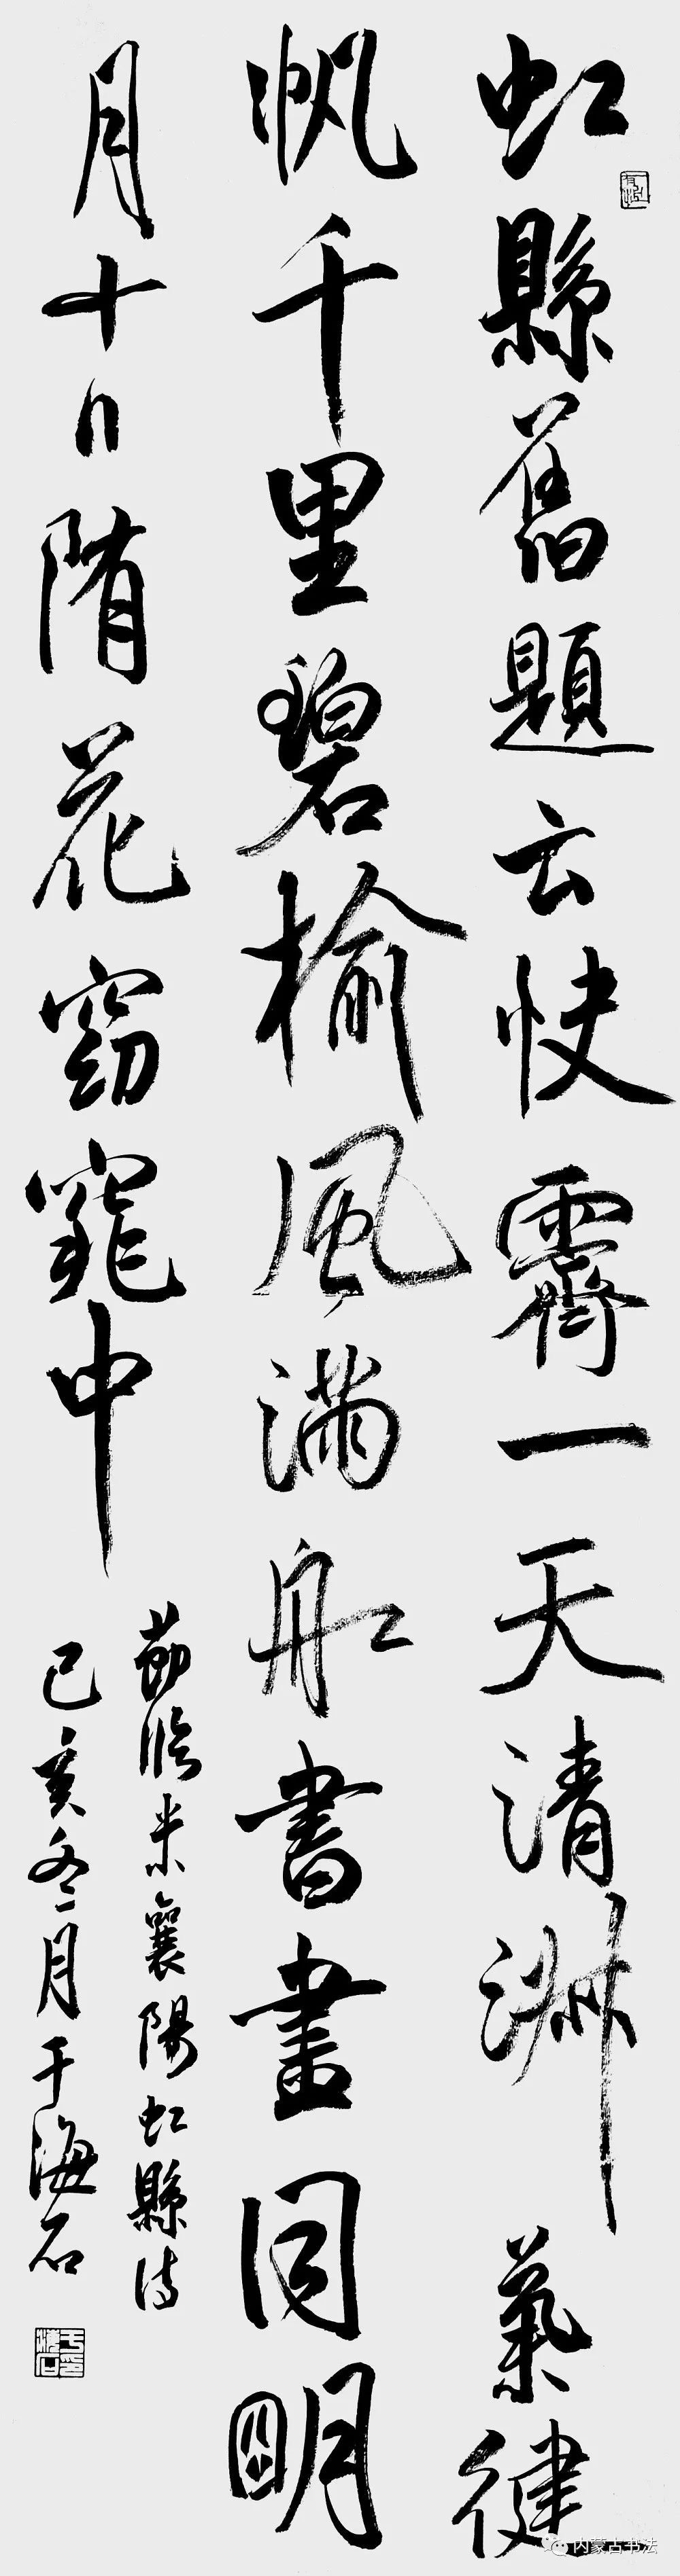 虹縣舊題云快霽一天清淑氣健
帆千里碧榆風滿舡書畫同明
月十日隋花窈窕中
節臨米襄陽虹縣诗
己亥冬月于海石
内蒙古书法